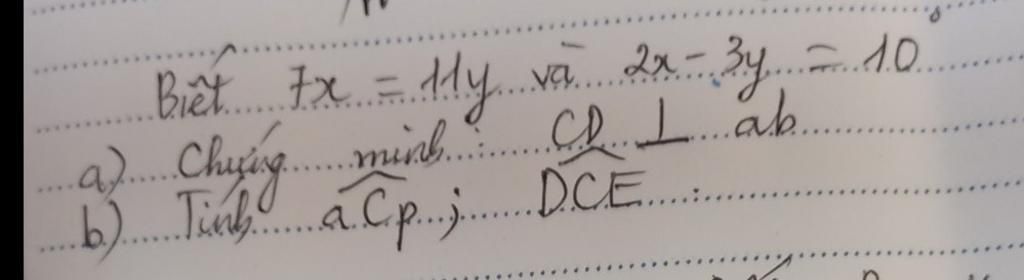 Biết 7x = 11y và 2x - 3y = 10°
a) Chứng minh: CD ⊥ ab
b) Tính aCp; DCE